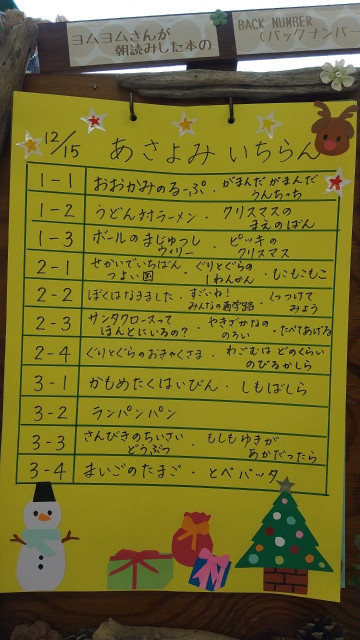 ヨムヨムさんが
朝読みした本の
BACK NUMBER
(バックナンバー
12/15 あさよみ いちらん
1-1 おおかみのるーぷ・がまんだ がまんだ
うんちっち
1-2 うどん対ラーメン・クリスマスの
まえのばん
1-3 ボールのまじゅつし
ウィリー・ピッキの
クリスマス
2-1 せかいでいちばん
つよい国・ぐりとぐらの
1ねんかん・もこもこもこ
2-2 ぼくはなきました・すごいね!
みんなの通学路・くっつけて
みよう
2-3 サンタクロースって
ほんとにいるの?・やきざかなの
のろい・たべてあげる
2-4 ぐりとぐらのおきゃくさま・わごむは どのくらい
のびるかしら
3-1 かもめたくはいびん・しもばしら
3-2 ランパンパン
3-3 さんびきのちいさい
どうぶつ・もしもゆきが
あかだったら
3-4 まいごのたまご・とべバッタ